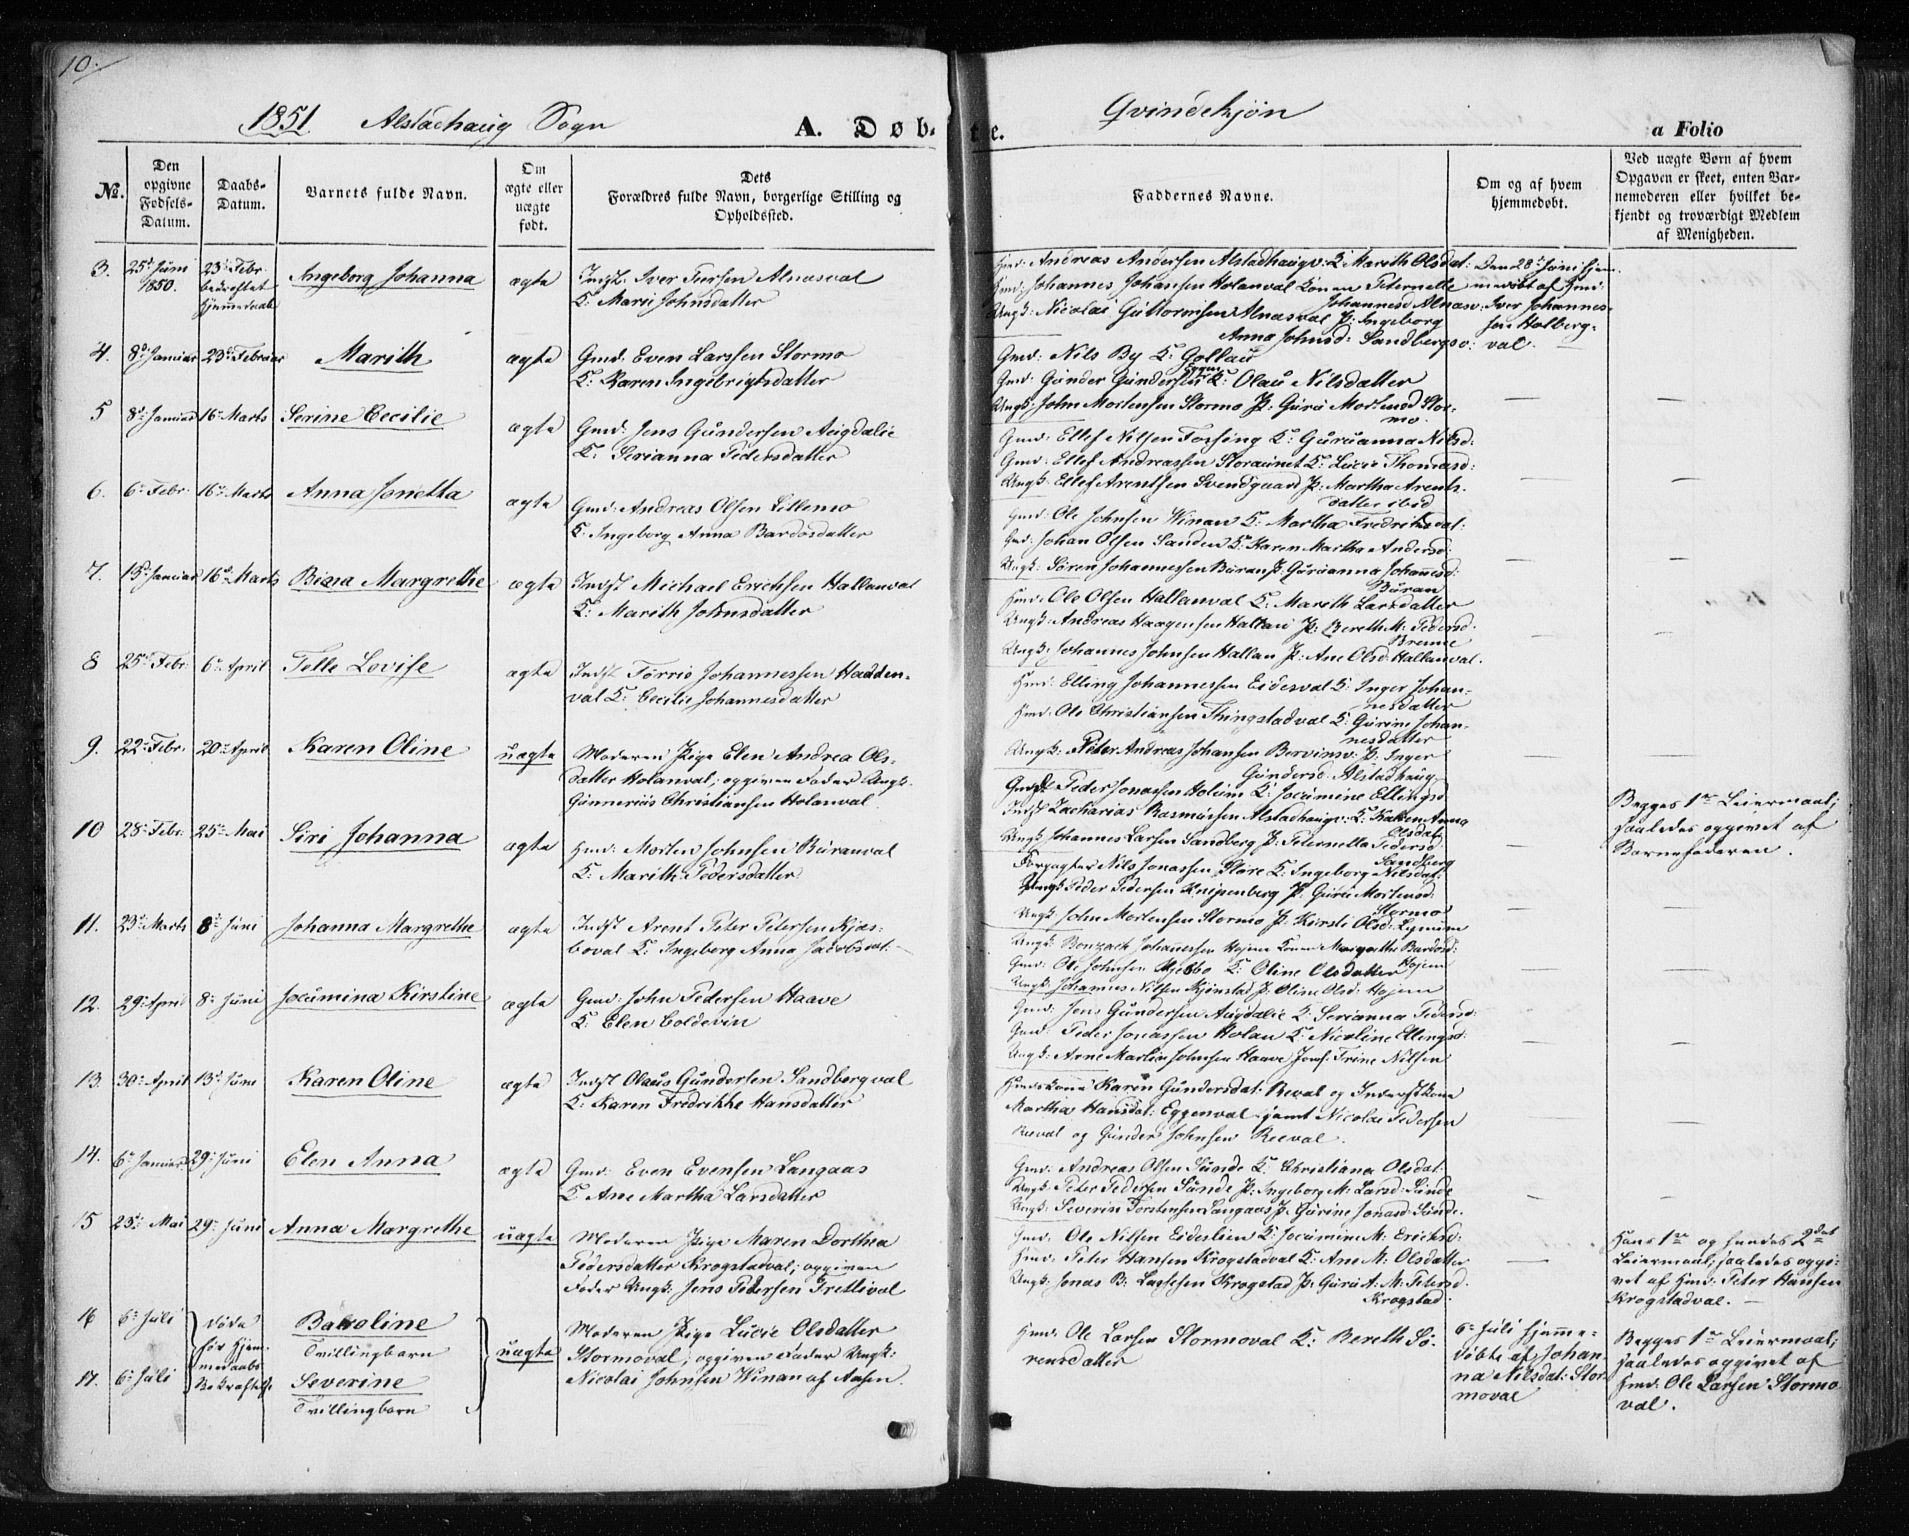 10.
1851 Alstadhaug Sogn
A. Døb-
te.
Qvindekjøn
a Folio
No.
Den opgivne Fødsels-Datum.
Daabs-Datum.
Barnets fulde Navn.
Om ægte eller uægte født.
Dets Forældres fulde Navn, borgerlige Stilling og Opholdssted.
Faddernes Navne.
Om og af hvem hjemmedøbt.
Ved uægte Børn af hvem Opgaven er skeet, enten Barnemoderen eller hvilket bekjendt og troværdigt Medlem af Menigheden.
3. 25d Juni 1850. 23d Febr. bekræftet Hjemmedaab Ingeborg Johanna ægte
Indst Iver Iversen Alnæsval
K: Marit Johnsdatter
Hmd: Andreas Andersen Alstadhaugv: K Marith Olsdat:
Hmd: Johannes Johansen Holanval Konen Peternelle
Johannesd Alnæsv:
Ungk: Nicolai Guttormsen Alnæsval P: Ingeborg
Anna Johnsd: Sandbergsv:
Den 28d Juni hjemmedøbt af Hmd: Iver Johannessen Holbergval.
4. 8d Januar 23d Februar Marith ægte
Gmd: Even Larssen Stormo
K: Karen Ingebrigtsdatter
Gmd: Nils By K: Gollau
Gmd: Gunder Gundersen Eggen K: Olau Nilsdatter
Ungk: John Mortensen Stormo P: Guru Mortensd Stormo.
5 8d Januar 16d Marts Serine Cecilie ægte
Gmd: Jens Gundersen Augdalie
K: Serianna Pedersdatter
Gmd: Ellef Nilsen Fossing K: Guruanna Nilsd:
Gmd: Ellef Andreassen Storaunet K: Lucie Thomasd:
Ungk: Ellef Arentsen Svendgaard P: Martha Arents-
datter ibid
6. 6d Febr. 16d Marts Anna Jonetta ægte
Gmd: Andreas Olsen Lillemo
K: Ingeborg Anna Bardosdatter
Gmd: Ole Johnsen Winan K: Martha Fredriksdat:
Gmd: Johan Olsen Sanden K: Karen Martha Andersd:
Ungk: Søren Johannessen Buran P: Guruanna Johannesd:
Buran
7. 15d Januar 16d Marts Biena Margrethe ægte
Indst Michael Erichsen Hallanval
K: Marith Johnsdatter
Hmd: Ole Olsen Hallanval K: Marith Larsdatter
Ungk: Andreas Haagensen Hallan P: Bereth M: Pedersd.
Brenne
Ungk: Johannes Johnsen Hallan P: Ane Olsd: Hallanval.
8 25d Febr. 6d April Telle Lovise ægte
Indst Tørris Johannessen Hadden-
val K: Cecilie Johannesdatter
Hmd: Elling Johannessen Eidesval K: Inger Johan-
nesdatter
Hmd: Ole Christiansen Thingstadval K: Gurine Johan-
nesdatter
Ungk: Peter Andreas Johansen Borvinsv: P: Inger
Gundersd: Alstadhaug.
9. 22d Febr. 20d April Karen Oline uægte
Moderen Pige Elen Andrea Ols-
datter Holanval; opgiven Fader Ungk.
Gunnerius Christiansen Holanval.
Peder Jonassen Holum K: Jocumine Ellingsd
Indst Zacharias Rasmussen Alstadhaugv: K: Karen Anna
Olsdat:
Ungk Johannes Larsen Sandberg P: Peternella Pedersd:
Sandberg
Begges 1ste Leiermaal; saaledes opgivet af Barnefaderen.
10 28d Febr. 25d Mai Siri Johanna ægte
Hmd: Morten Johnsen Buranval
K: Marith Pedersdatter
Forpagter Nils Jonassen Støre K: Ingeborg Nilsdat:
Ungk Peder Pedersen Kuipenberg P: Guru Mortensd:
Stormo
Ungk: John Mortensen Stormo P: Kirsti Olsd: Lynum
11. 23d Marts 8d Juni Johanna Margrethe ægte
Indst Arent Peter Petersen Kjæs-
boval K: Ingeborg Anna Jacobsdat:
Ungk: Bonzach Johannessen Hojem Konen Margrethe Bardosd:
Hojem
Gmd: Ole Johnsen Skjesbo K: Oline Olsdatter
Ungk: Johannes Nilsen Kjønstad P: Oline Olsd: Hojem
12. 29d April 8d Juni Jocumina Kirstine ægte
Gmd: John Pedersen Haave
K: Elen Coldevin
Gmd: Jens Gundersen Augdalie K: Serianna Pedersd:
Gmd: Peder Jonassen Holan K: Nicoline Ellingsd:
Ungk: Arne Martin Johnsen Haave Jomf: Trine Nilsen
13. 30d April 13d Juni Karen Oline ægte
Indst Olaus Gundersen Sandbergval
K: Karen Fredrikke Hansdatter
Hmdskone Karen Gundersdat: Reeval og Inderstkone
Martha Hansdat: Eggenval samt Nicolai Pedersen
Reeval og Gunder Johnsen Reeval.
14. 6d Januar 29d Juni Elen Anna ægte
Gmd: Even Evensen Langaas
K Ane Martha Larsdatter
Gmd: Andreas Olsen Sunde K: Christiana Olsdat:
Ungk: Peter Pedersen Sunde P: Ingeborg M: Larsd: Sunde
Ungk: Severin Torstensen Langaas P: Gurine Jonasd: Sunde.
15 23d Mai 29d Juni Anna Margrethe uægte
Moderen Pige Maren Dorthea
Pedersdatter Krogstadval; opgiven
Fader Ungk: Jens Pedersen Tretlival
Gmd: Ole Nilsen Eideslien K: Jocumine M: Erichsd:
Hmd: Peter Hansen Krogstadval K: Ane M: Olsdatter
Ungk: Jonas B: Lassesen Krogstad P: Guru A: M: Petersd.
Krogstad:
Hans 1ste og hendes 2det Leiermaal; saaledes opgivet af Hmd: Peter Hansen Krogstadval.
16 6d Juli Døde før Hjemmedaabs Bekræftelse Baroline Tvillingbarn uægte
17. 6d Juli Severine Tvillingbarn
Moderen Pige Lucie Olsdatter
Stormoval; opgiven Fader Ungk:
Nicolai Johnsen Winan af Aasen.
Hmd: Ole Larsen Stormoval K: Bereth Sø-
rensdatter
6d Juli hjemmedøbte af Johanna Nilsdat: Stormoval
Begges 1ste Leiermaal; saaledes opgivet af Hmd: Ole Larsen Stormoval.